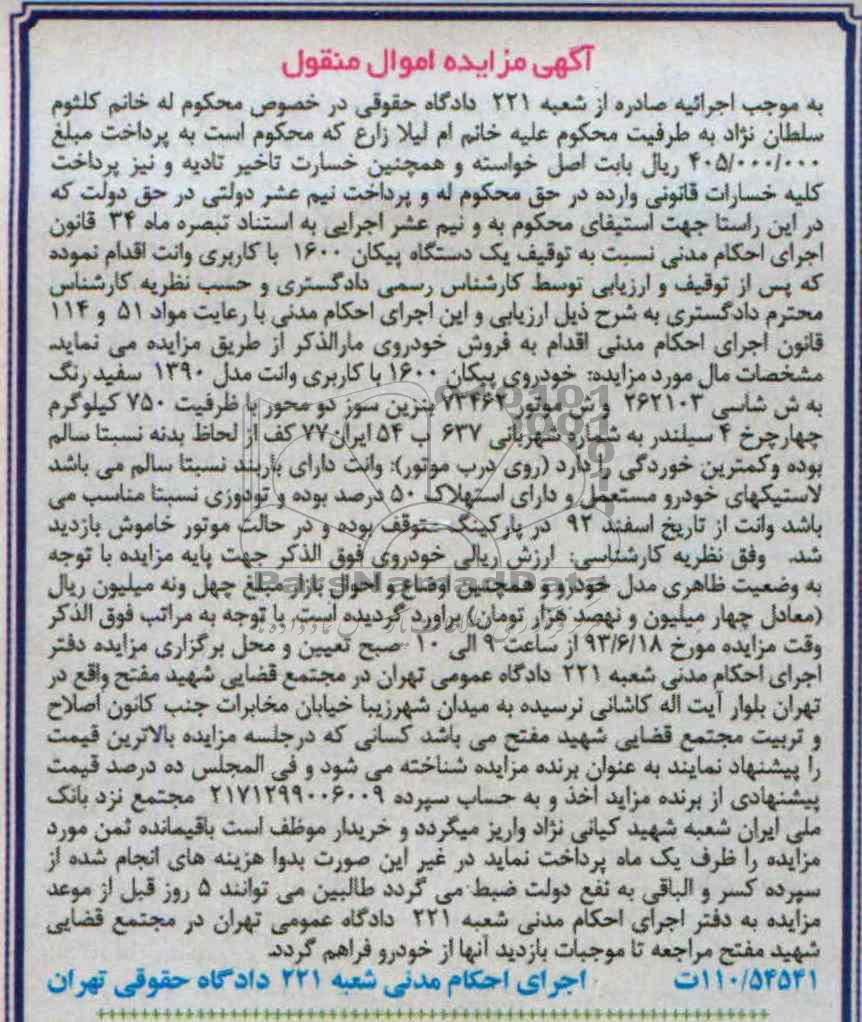 آگهی مزایده اموال منقول
به موجب اجرائیه صادره از شعبه ۲۲۱ دادگاه حقوقی در خصوص محکوم له خانم کلثوم
سلطان نژاد به طرفیت محکوم علیه خانم ام لیلا زارع که محکوم است به پرداخت مبلغ
۴۰۵/۰۰۰/۰۰۰ ریال بابت اصل خواسته و همچنین خسارت تاخیر تادیه و نیز پرداخت
کلیه خسارات قانونی وارده در حق محکوم له و پرداخت نیم عشر دولتی در حق دولت که
در این راستا جهت استیفای محکوم به و نیم عشر اجرایی به استناد تبصره ماه ۳۴ قانون
اجرای احکام مدنی نسبت به توقیف یک دستگاه پیکان ۱۶۰۰ با کاربری وانت اقدام نموده
که پس از توقیف و ارزیابی توسط کارشناس رسمی دادگستری و حسب نظریه کارشناس
محترم دادگستری به شرح ذیل ارزیابی و این اجرای احکام مدنی با رعایت مواد ۵۱ و ۱۱۴
قانون اجرای احکام مدنی اقدام به فروش خودروی مارالذکر از طریق مزایده می نماید.
مشخصات مال مورد مزایده: خودروی پیکان ۱۶۰۰ با کاربری وانت مدل ۱۳۹۰ سفید رنگ
به ش شاسی ۲۶۲۱۰۳ و ش موتور ۷۳۴۶۲ بنزین سوز دو محور با ظرفیت ۷۵۰ کیلوگرم
چهارچرخ ۴ سیلندر به شماره شهربانی ۶۳۷ ب ۵۴ ایران ۷۷ کف از لحاظ بدنه نسبتا سالم
بوده و کمترین خوردگی را دارد (روی درب موتور): وانت دارای باربند نسبتا سالم می باشد
لاستیکهای خودرو مستعمل و دارای استهلاک ۵۰ درصد بوده و تودوزی نسبتا مناسب می
باشد وانت از تاریخ اسفند ۹۲ در پارکینگ متوقف بوده و در حالت موتور خاموش بازدید
شد. وفق نظریه کارشناسی: ارزش ریالی خودروی فوق الذکر جهت پایه مزایده با توجه
به وضعیت ظاهری مدل خودرو و همچنین اوضاع و احوال بازار مبلغ چهل ونه میلیون ریال
(معادل چهار میلیون و نهصد هزار تومان) براورد گردیده است. با توجه به مراتب فوق الذکر
وقت مزایده مورخ ۹۳/۶/۱۸ از ساعت ۹ الی ۱۰ صبح تعیین و محل برگزاری مزایده دفتر
اجرای احکام مدنی شعبه ۲۲۱ دادگاه عمومی تهران در مجتمع قضایی شهید مفتح واقع در
تهران بلوار آیت اله کاشانی نرسیده به میدان شهرزیبا خیابان مخابرات جنب کانون اصلاح
و تربیت مجتمع قضایی شهید مفتح می باشد کسانی که درجلسه مزایده بالاترین قیمت
را پیشنهاد نمایند به عنوان برنده مزایده شناخته می شود و فی المجلس ده درصد قیمت
پیشنهادی از برنده مزاید اخذ و به حساب سپرده ۲۱۷۱۲۹۹۰۰۶۰۰۹ مجتمع نزد بانک
ملی ایران شعبه شهید کیانی نژاد واریز میگردد و خریدار موظف است باقیمانده ثمن مورد
مزایده را ظرف یک ماه پرداخت نماید در غیر این صورت بدوا هزینه های انجام شده از
سپرده کسر و الباقی به نفع دولت ضبط می گردد طالبین می توانند ۵ روز قبل از موعد
مزایده به دفتر اجرای احکام مدنی شعبه ۲۲۱ دادگاه عمومی تهران در مجتمع قضایی
شهید مفتح مراجعه تا موجبات بازدید آنها از خودرو فراهم گردد.
۱۱۰/۵۴۵۴۱ت اجرای احکام مدنی شعبه ۲۲۱ دادگاه حقوقی تهران
ParsNamadData